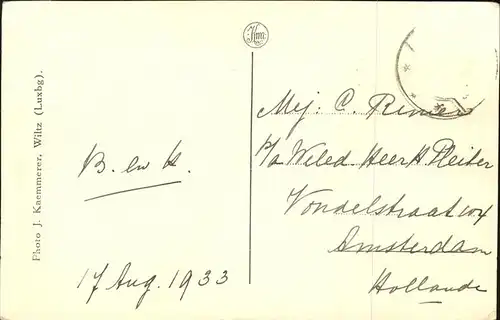 Photo J. Kaemmerer, Wiltz (Luxbg).
B. en K.
17 Aug. 1933
Mej. C. Remier
p/a Weled. Heer H. Pleiter
Vondelstraat 104
Amsterdam
Hollande